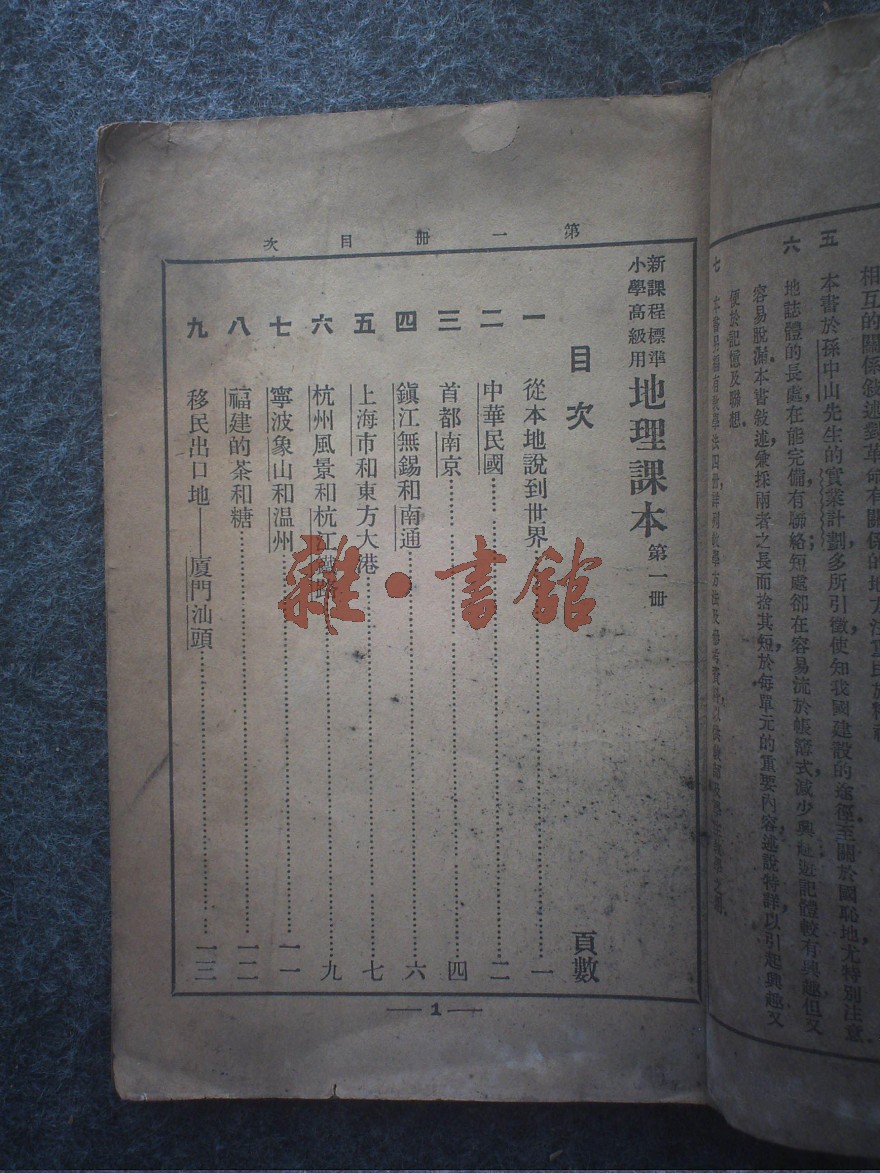 相互的關係敘述對革命有關係的地方注重民族精神
五 本書於孫中山先生的實業計劃多所引徵使知我國建設的途徑至關於國恥地尤特別注意.
六 地誌體的長處在能完備有聯絡短處卻在容易流於帳簿式減少興趣遊記體較有興趣但又
容易脫漏.本書敘述兼採兩者之長而捨其短於每單元的重要內容述說特詳以引起興趣又
便於記憶及聯想.
第一冊目次
新課程標準
小學高級用
地理課本 第一冊
目次 頁數
一 從本地說到世界 一
二 中華民國 二
三 首都南京 四
四 鎭江無錫和南通 六
五 上海市和東方大港 七
六 杭州風景和杭江鐵路 九
七 寧波象山和温州 一一
八 福建的茶和糖 一二
九 移民出口地——廈門汕頭 一三
— 1 —
雜·書館